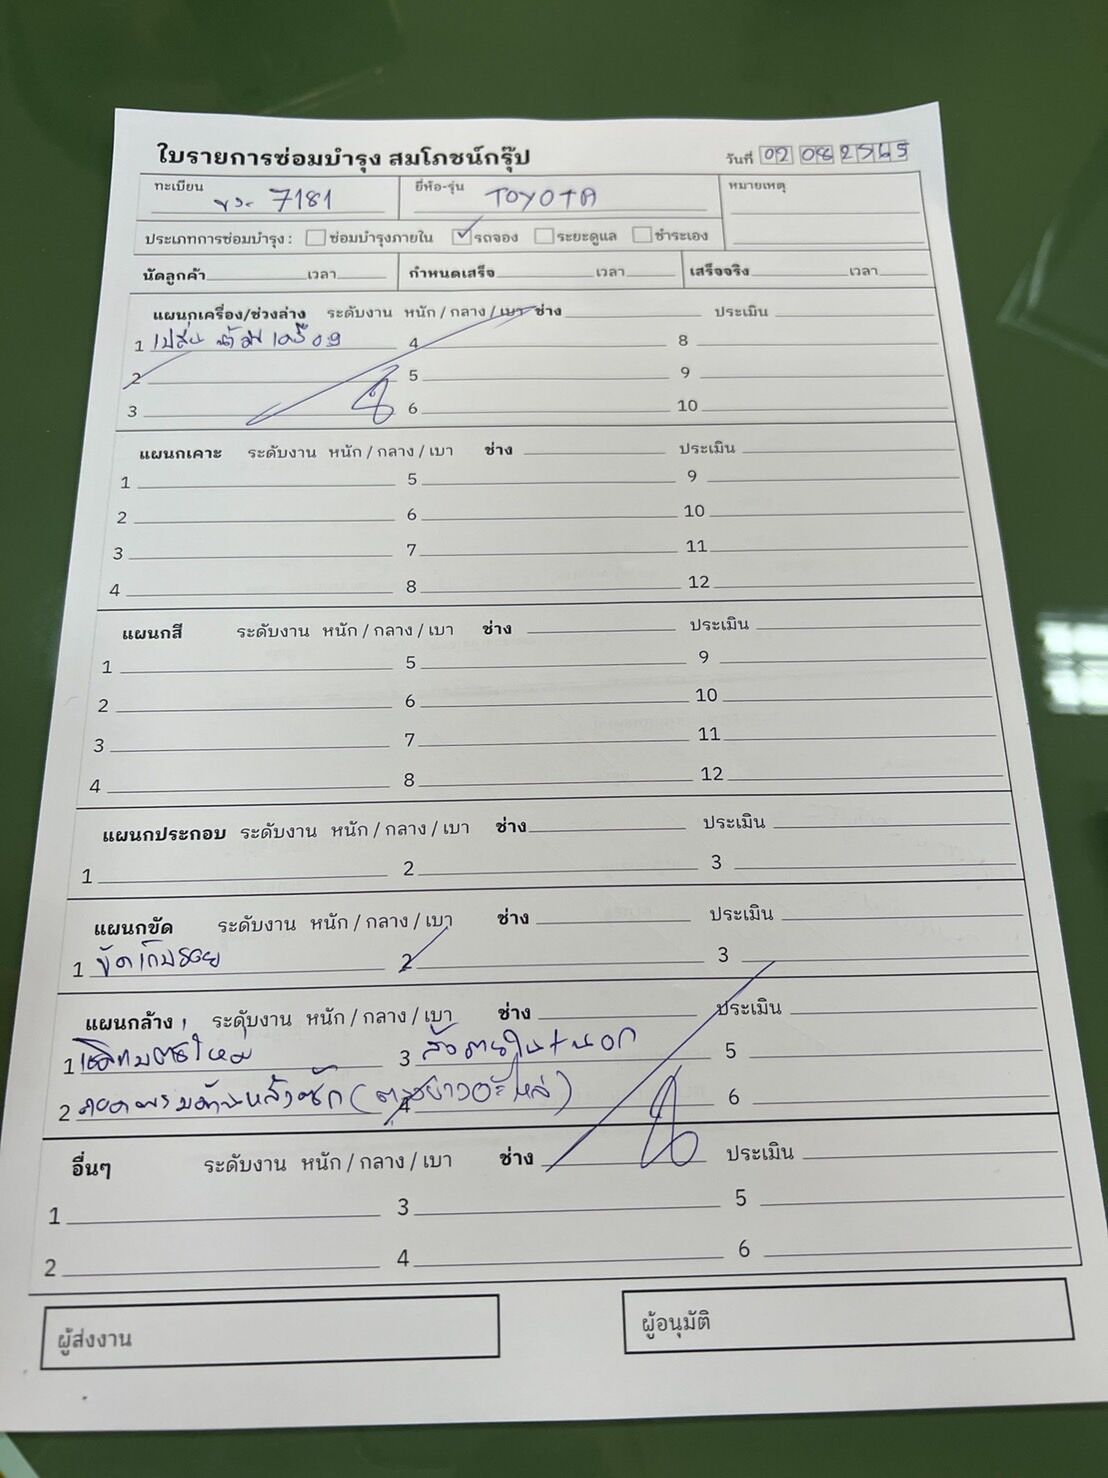 ใบรายการซ่อมบำรุง สมโภชน์กรุ๊ป
วันที่ 02 08 2565
ทะเบียน 7181 ยี่ห้อ-รุ่น TOYOTA หมายเหตุ
ประเภทการซ่อมบำรุง : ซ่อมบำรุงภายใน รถจอง ระยะดูแล ชำระเอง
นัดลูกค้า เวลา กำหนดเสร็จ เวลา เสร็จจริง เวลา
แผนกเครื่อง/ช่วงล่าง ระดับงาน หนัก / กลาง / เบา ช่าง ประเมิน
1 เปลี่ยน น้ำมันเครื่อง 4 8
2 5 9
3 6 10
แผนกเคาะ ระดับงาน หนัก / กลาง / เบา ช่าง ประเมิน
1 5 9
2 6 10
3 7 11
4 8 12
แผนกสี ระดับงาน หนัก / กลาง / เบา ช่าง ประเมิน
1 5 9
2 6 10
3 7 11
4 8 12
แผนกประกอบ ระดับงาน หนัก / กลาง / เบา ช่าง ประเมิน
1 2 3
แผนกขัด ระดับงาน หนัก / กลาง / เบา ช่าง ประเมิน
1 ขัดเก็บรอย 2 3
แผนกล้าง ระดับงาน หนัก / กลาง / เบา ช่าง ประเมิน
1 3 ล้างภายใน+นอก 5
2 4 6
อื่นๆ ระดับงาน หนัก / กลาง / เบา ช่าง ประเมิน
1 3 5
2 4 6
ผู้ส่งงาน ผู้อนุมัติ